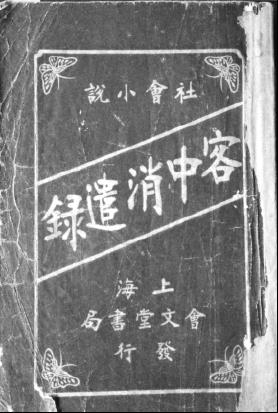 社會小說
客中消遣録
上海
會文堂書局
發行